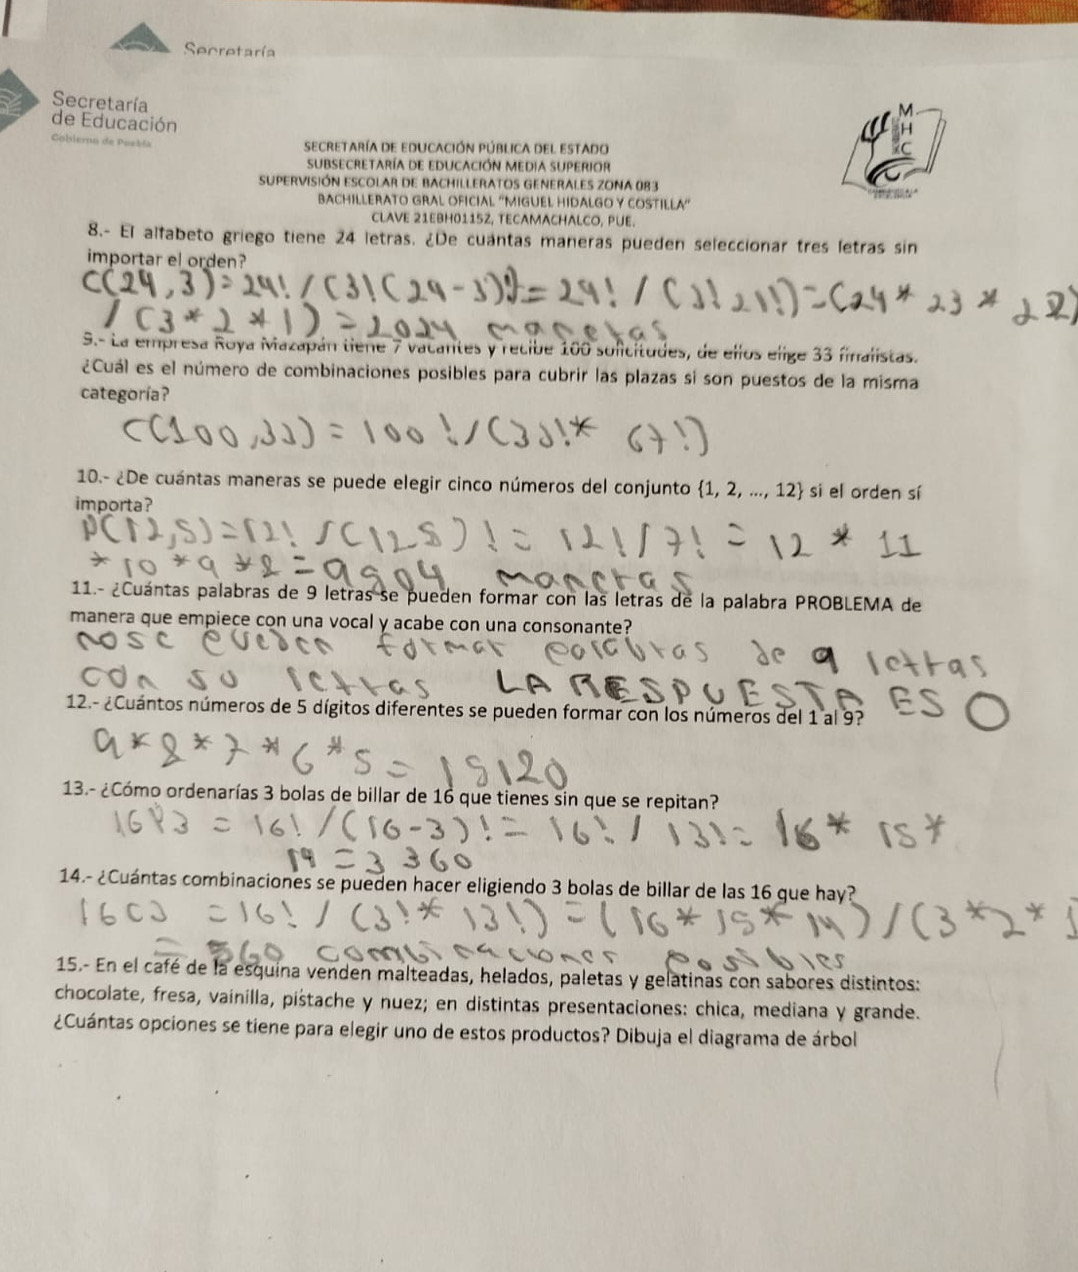 Secretaría
Secretaría
de Educación
Gobierno de Puebla
M
H
C
SECRETARÍA DE EDUCACIÓN PÚBLICA DEL ESTADO
SUBSECRETARÍA DE EDUCACIÓN MEDIA SUPERIOR
SUPERVISIÓN ESCOLAR DE BACHILLERATOS GENERALES ZONA 083
BACHILLERATO GRAL OFICIAL "MIGUEL HIDALGO Y COSTILLA"
CLAVE 21EBH0115Z, TECAMACHALCO, PUE.
8.- El alfabeto griego tiene 24 letras. ¿De cuántas maneras pueden seleccionar tres letras sin
importar el orden?
C(24,3)=24!/(3!(24-3)!)=24!/(3!21!)=(24*23*22)
/(3*2*1)=2024 maneras
9.- La empresa Roya Mazapán tiene 7 vacantes y recibe 100 solicitudes, de ellos elige 33 finalistas.
¿Cuál es el número de combinaciones posibles para cubrir las plazas si son puestos de la misma
categoría?
C(100,33)=100!/(33!* 67!)
10.- ¿De cuántas maneras se puede elegir cinco números del conjunto {1, 2, ..., 12} si el orden sí
importa?
P(12,5)=12!/(12-5)!=12!/7!=12*11
*10*9*8=9504 maneras
11.- ¿Cuántas palabras de 9 letras se pueden formar con las letras de la palabra PROBLEMA de
manera que empiece con una vocal y acabe con una consonante?
no se pueden formar palabras de 9 letras
con su letras LA RESPUESTA ES 0
12.- ¿Cuántos números de 5 dígitos diferentes se pueden formar con los números del 1 al 9?
9*8*7*6*5=15120
13.- ¿Cómo ordenarías 3 bolas de billar de 16 que tienes sin que se repitan?
16P3=16!/(16-3)!=16!/13!=16*15*
14=3360
14.- ¿Cuántas combinaciones se pueden hacer eligiendo 3 bolas de billar de las 16 que hay?
16C3=16!/(3!*13!)=(16*15*14)/(3*2*1
=560 combinaciones posibles
15.- En el café de la esquina venden malteadas, helados, paletas y gelatinas con sabores distintos:
chocolate, fresa, vainilla, pistache y nuez; en distintas presentaciones: chica, mediana y grande.
¿Cuántas opciones se tiene para elegir uno de estos productos? Dibuja el diagrama de árbol